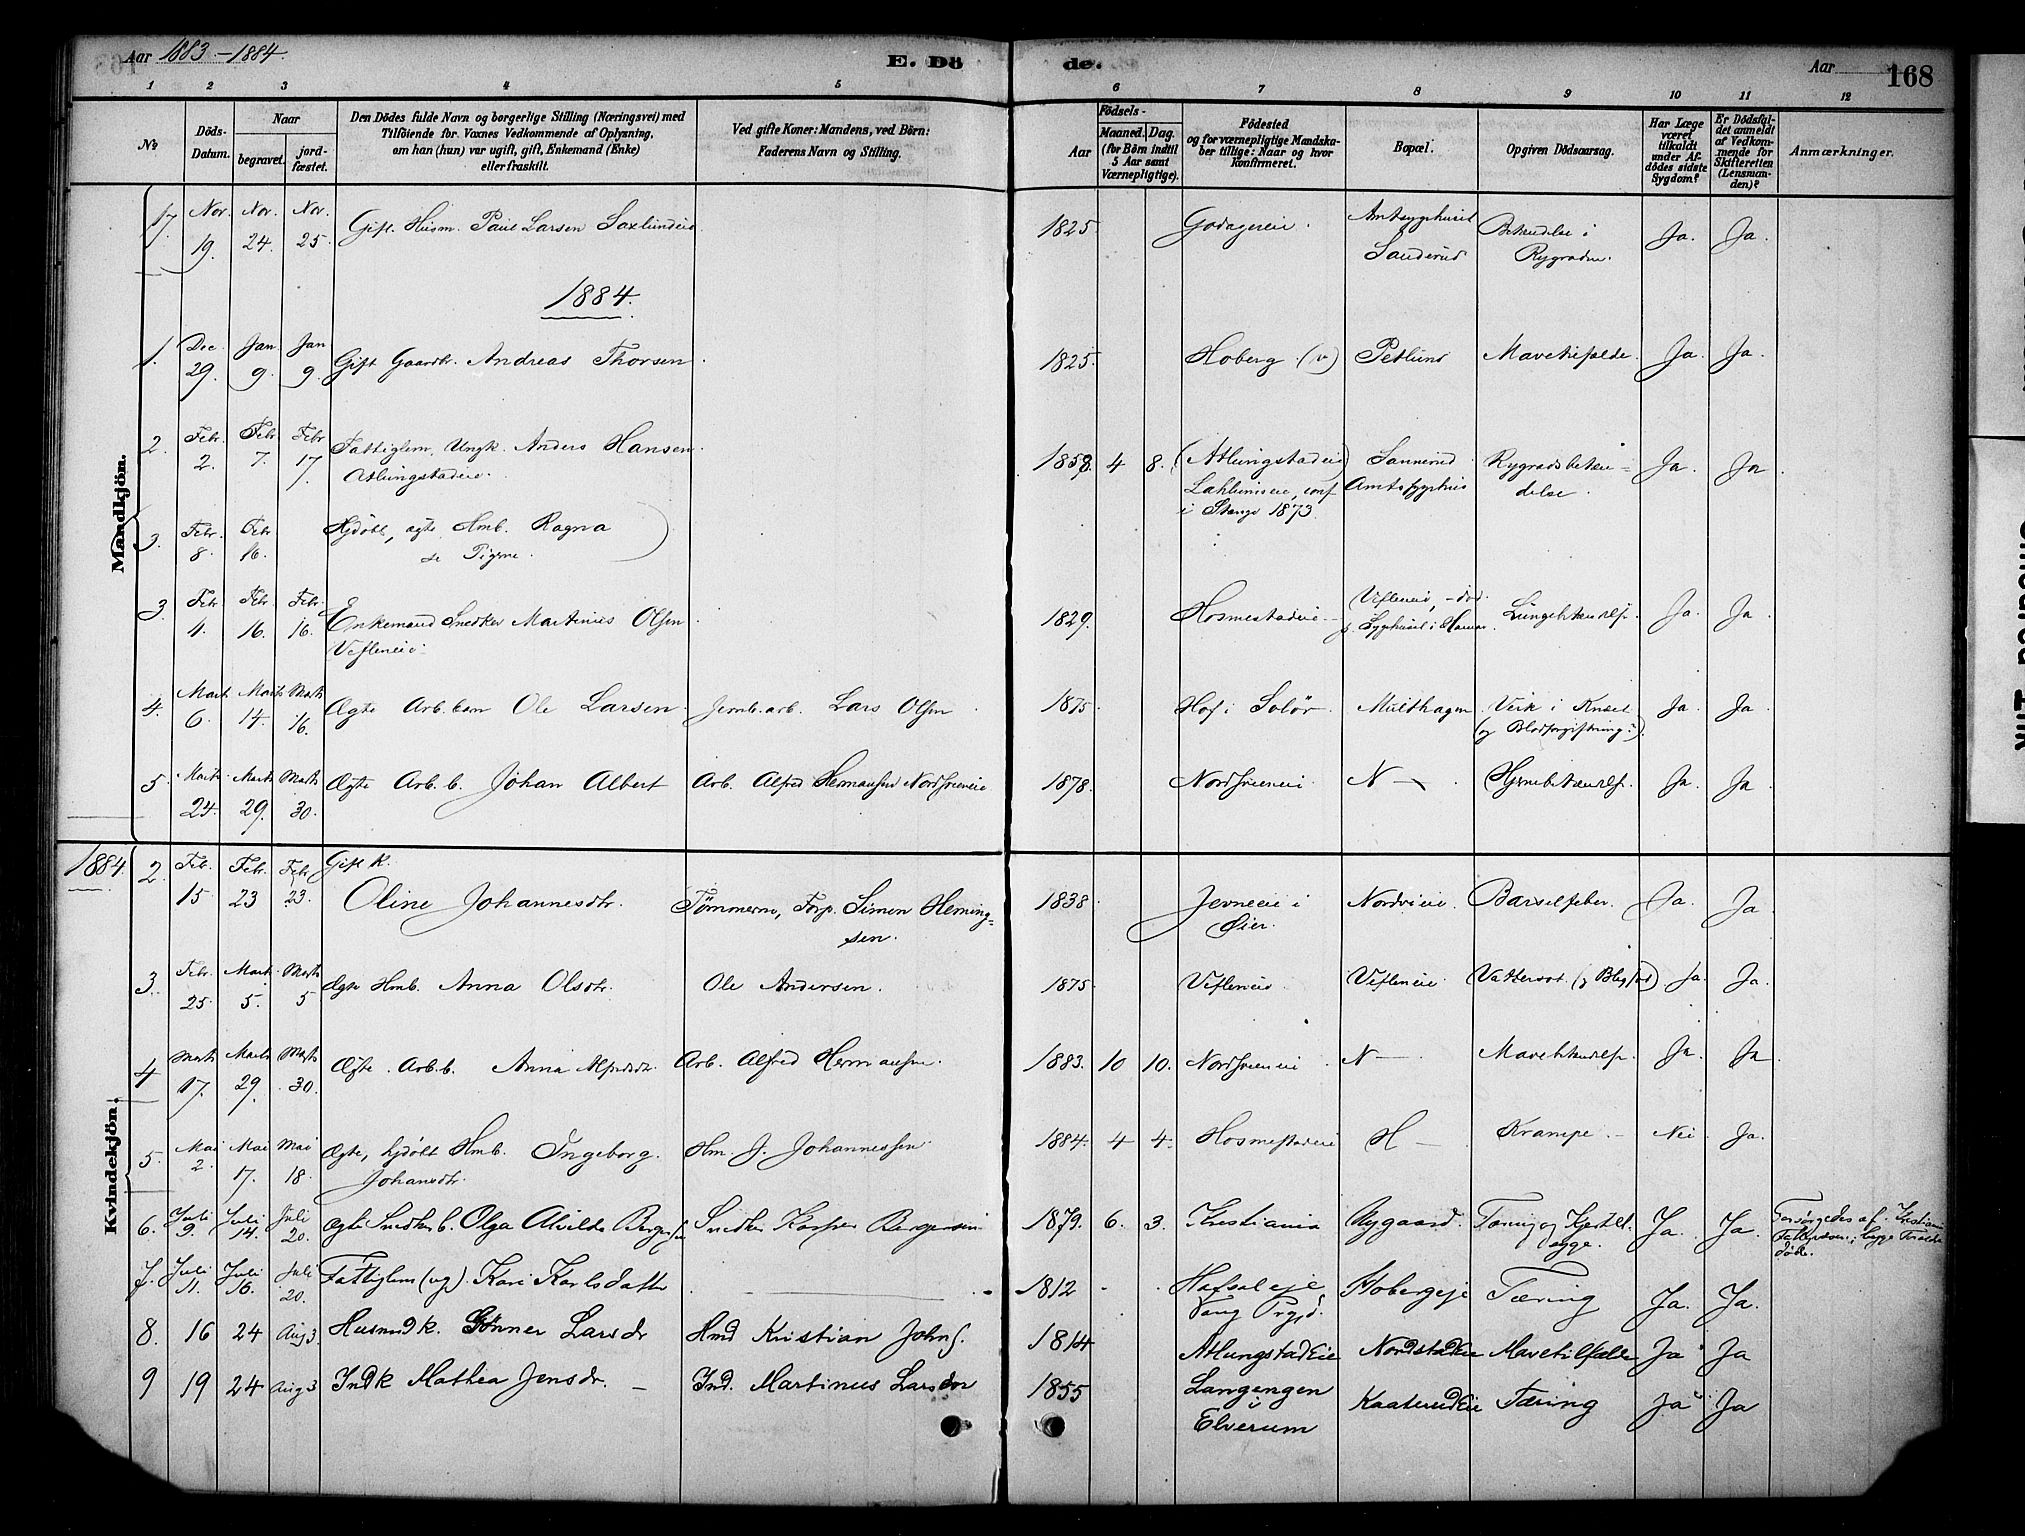 Aar 1883-1884.
E. Dö de.
Aar 168
1 2 3 4 5 6 7 8 9 10 11 12
No
Döds-Datum.
Naar
begravet.
jord-fæstet.
Den Dödes fulde Navn og borgerlige Stilling (Næringsvei) med
Tilföiende for Voxnes Vedkommende af Oplysning,
om han (hun) var ugift, gift, Enkemand (Enke)
eller fraskilt.
Ved gifte Koner: Mandens, ved Börn:
Faderens Navn og Stilling.
Födsels-
Aar
Maaned. Dag.
(for Börn indtil
5 Aar samt
Værnepligtige).
Födested
og for værnepligtige Mandska-
ber tillige: Naar og hvor
konfirmeret.
Bopæl.
Opgiven Dödsaarsag.
Har Læge
været
tilkaldt
under Af-
dödes sidste
Sygdom?
Er Dödsfal-
det anmeldt
af Vedkom-
mende for
Skifteretten
(Lensman-
den)?
Anmærkninger.
Mandkjön.
17. Nov. 19. Nov. 24. Nov. 25. Gift. Husm. Paul Larsen Saxlundeie. 1825. Godagereie. Amtsygehuset Sanderud Betændelse i Rygraden. Ja. Ja.
1884.
1. Dec. 29. Jan. 9. Jan 9. Gift Gaardbr. Andreas Thorsen. 1825. Hoberg (v) Petlund Mavetilfælde. Ja. Ja.
2. Febr. 2. Febr 7. Febr 17. Fattiglem, Ungk. Anders Hansen
Atlungstadeie. 1858. 4 8. (Atlungstadeie) conf i Stange 1873. Sannerud Amtssygehus Rygradsbetændelse. Ja. Ja
3. Febr. 8. Febr 16. Hjdöbt, ægte Hmb. Ragna
se Pigerne.
3. Febr 4. Febr 16. Febr. 16. Enkemand Snedker Martinus Olsen
Vefleneie. 1829. Hosmestadeie Vefleneie, - död p. Sygehuset i Hamar. Lungebetændelse. Ja. Ja.
4. Marts 6. Marts 14. Marts 16. Ægte Arb. barn Ole Larsen Jernb. arb. Lars Olsen. 1875 Hof i Solör. Multhagen Verk i Knæet (og Blodforgiftning). Ja. Ja.
5. Marts 24. Marts 29. Marts 30. Ægte Arb. b. Johan Albert Arb. Alfred Hermansen Nordsveneie 1878. Nordsveneie N — Hjernebetændelse. Ja. Ja.
Kvindekjön.
1884. 2. Feb. 15. Febr. 23 Febr 23. Gift K.
Oline Johannesdtr. Tömmerm, Forp. Simon Hemingsen. 1838 Jevneeie i Öier. Nordvieie. Barselfeber. Ja. Ja.
3. Febr. 25. Marts 5. Marts 5 Ægte Hmb. Anna Olsdtr. Ole Andersen. 1875 Vefleneie Vefleneie. Vattersot. Ja. Ja.
4 Marts 17. Marts 29. Marts 30. Ægte Arb. b. Anna Alfredsdtr. Arb. Alfred Hermansen. 1883. 10 10. Nordsveneie N — Mavebetændelse. Ja. Ja
5. Mai 2. Mai 17. Mai 18. Ægte, hjdöbt Hmb. Ingeborg
Johansdtr. Hm. J. Johannessen. 1884. 4 4. Hosmestadeie H — Krampe. Nei. Ja.
6. Juli 9. Juli 14. Juli 20. ægte Snedker b. Olga Alvilde Bergersen Snedker Kasper Bergersen 1879. 6. 3. Kristiania Nygaard. Tæring og Kjertelsyge. Ja. Ja. Forsörgedes af Kristiania Fattigvæsen; begge Forældre döde.
7. Juli 11. Juli 16. Juli 20. Fattiglem (ug). Kari Karlsdatter 1812 Hafsaleje Vang Prgjd. Hobergeje Tæring Ja. Ja.
8. 16 24 Aug 3 Husmdk. Gunner Larsdr Hmd Kristian Johns. 1814 AtlungstadEie NordstadEie Mavetilfælde Ja Ja
9 19 24 Aug 3 Indk Mathea Jensdr. — Ind. Martinus Larsen 1855 Langengen i Elverum KaaterudEie Tæring Ja Ja